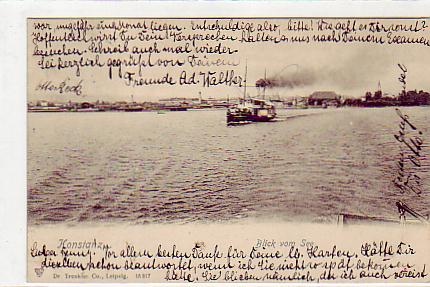 war ungefähr einen Monat liegen. Entschuldige also, bitte! Wie geht es Dir sonst?
Hoffentlich wirst Du Dein Versprechen halten u. uns nach Deinem Examen
besuchen. Schreib auch mal wieder
Sei herzlich gegrüßt von Deinem
Freunde Ad. Walther
Konstanz.
Blick vom See
Dr. Trenkler Co., Leipzig.
Lieber Henny. Vor allem besten Dank für Deine lb. Karten. Hätte Dir
dieselben schon beantwortet, wenn ich sie nicht so spät bekommen
hätte. Sie blieben nämlich, da ich auch verreist